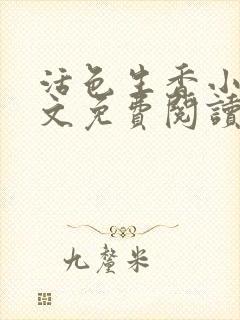 活色生香小
文免費閱讀
九釐米